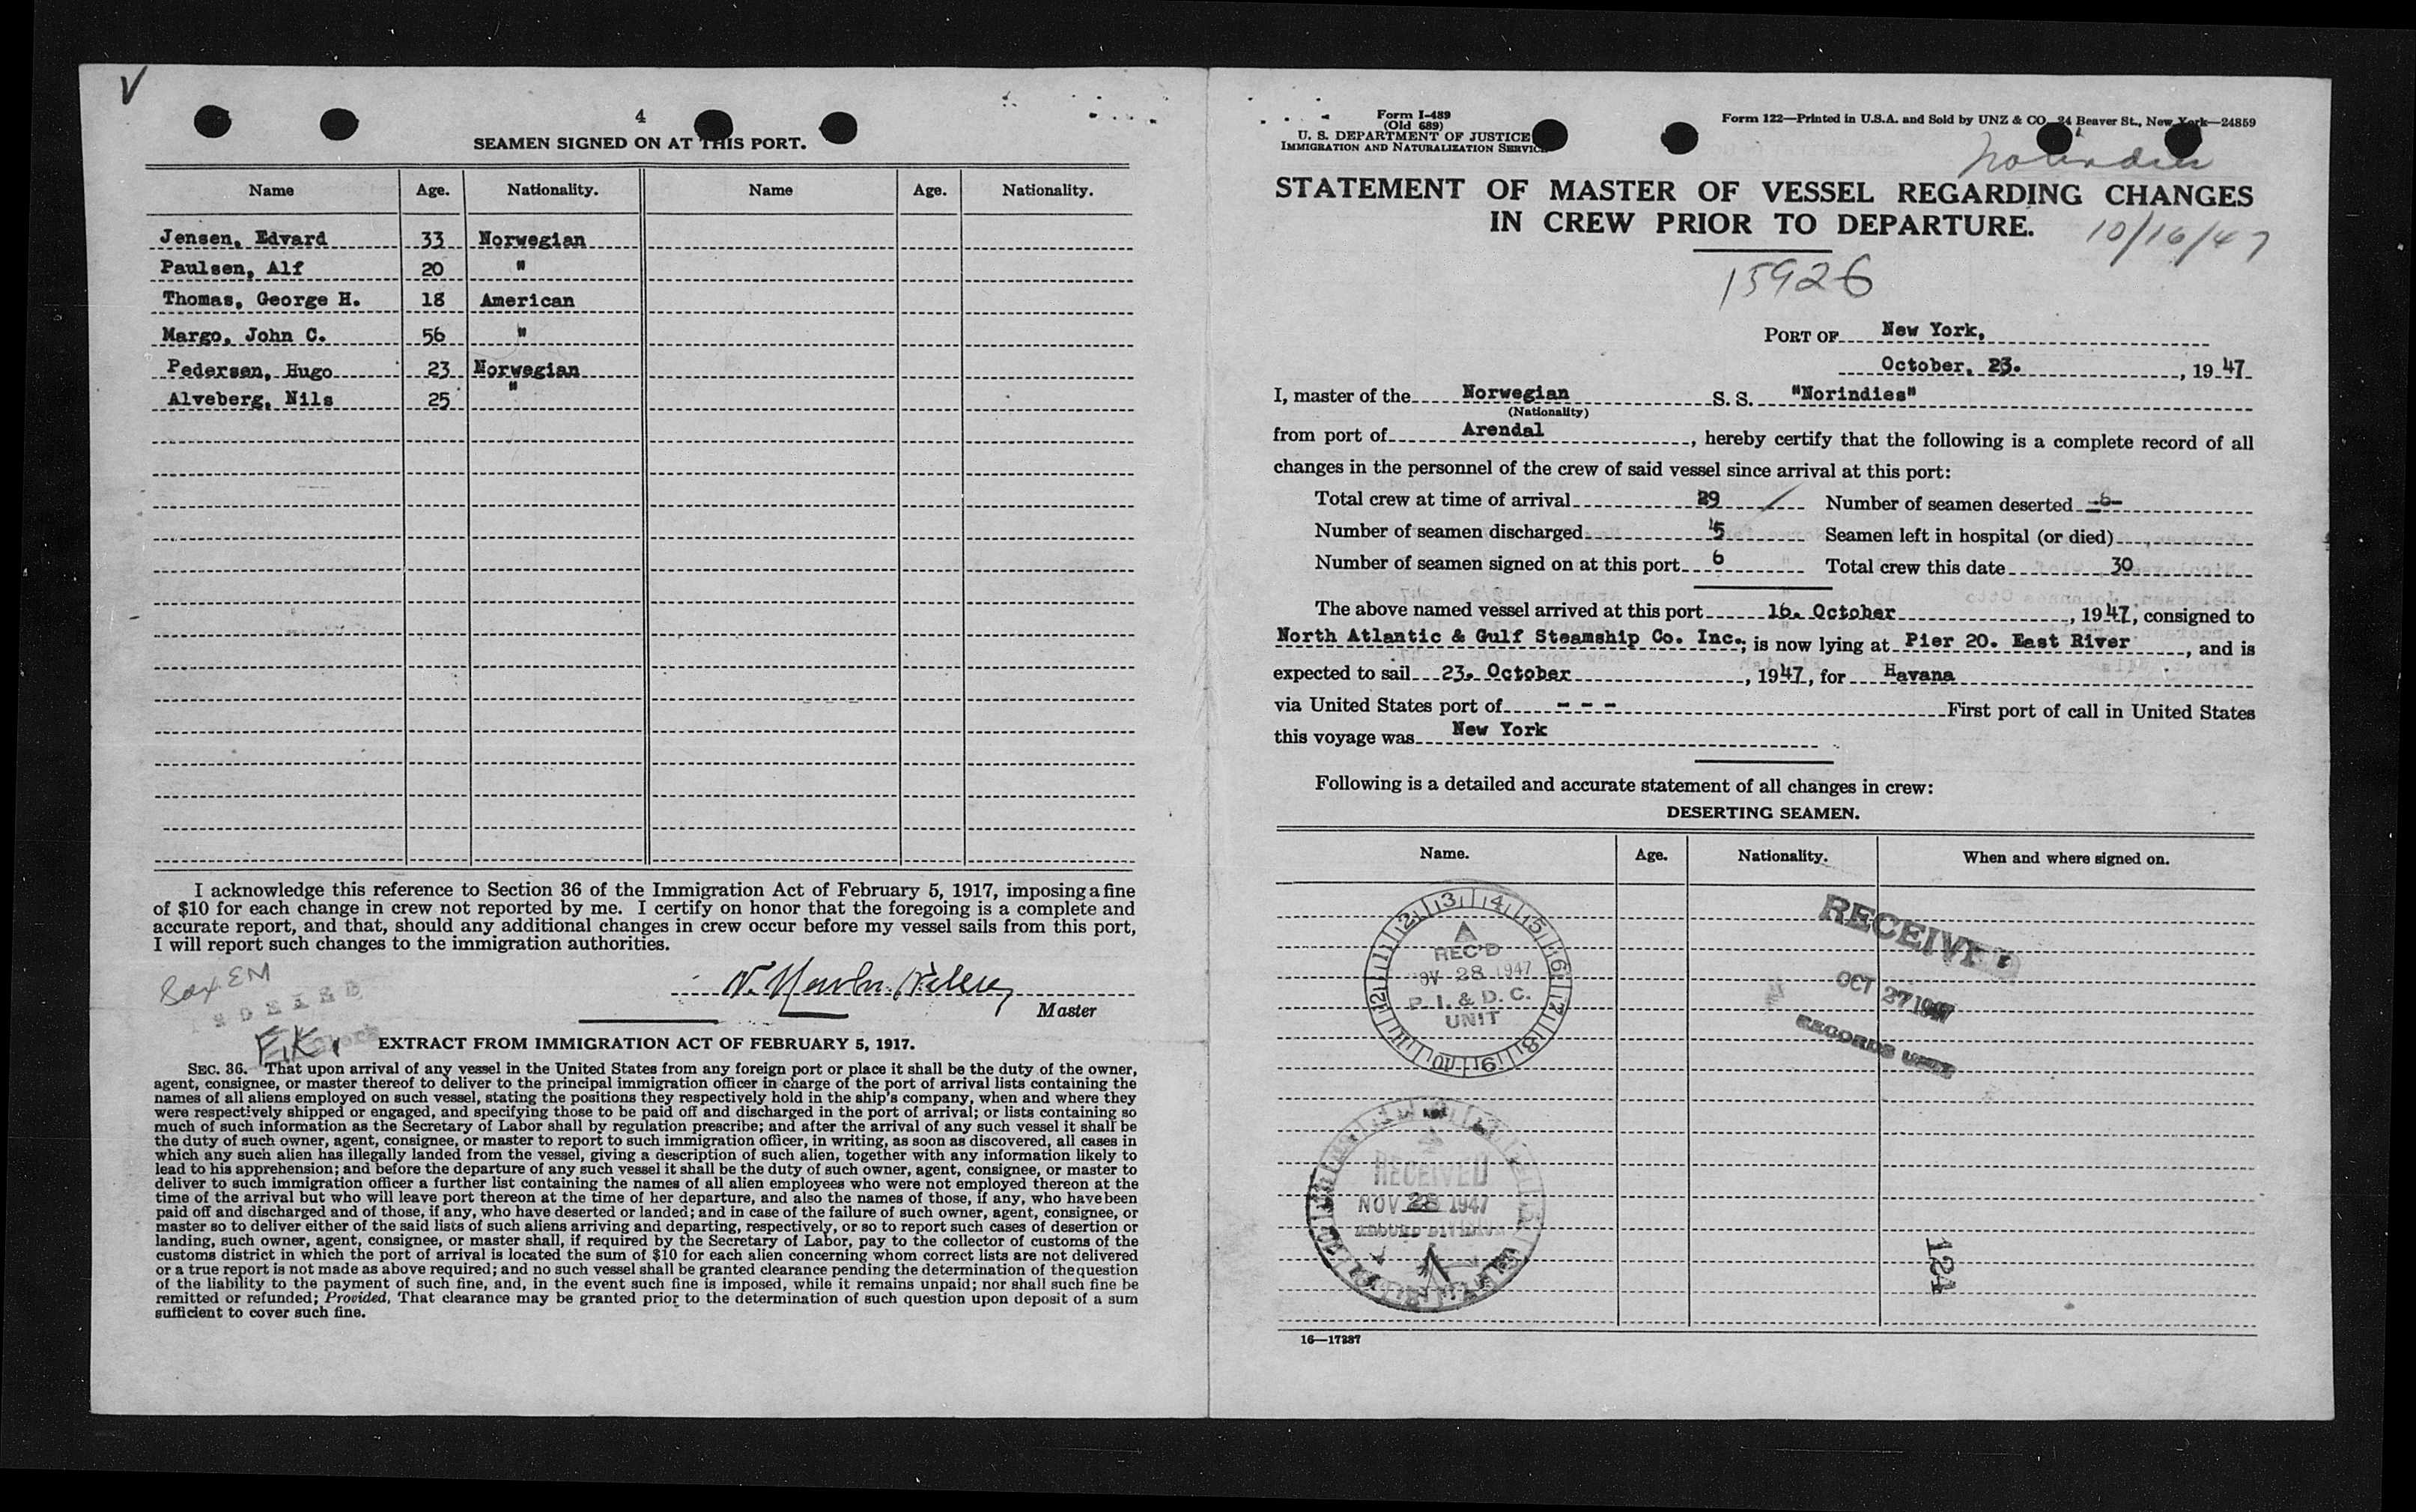 V
4
SEAMEN SIGNED ON AT THIS PORT.
Name Age. Nationality. Name Age. Nationality.
Jensen, Edvard 33 Norwegian
Paulsen, Alf 20 "
Thomas, George H. 18 American
Margo, John C. 56 "
Pedersen, Hugo 23 Norwegian
Alveberg, Nils 25 "
I acknowledge this reference to Section 36 of the Immigration Act of February 5, 1917, imposing a fine
of $10 for each change in crew not reported by me. I certify on honor that the foregoing is a complete and
accurate report, and that, should any additional changes in crew occur before my vessel sails from this port,
I will report such changes to the immigration authorities.
Master
EXTRACT FROM IMMIGRATION ACT OF FEBRUARY 5, 1917.
SEC. 36. That upon arrival of any vessel in the United States from any foreign port or place it shall be the duty of the owner,
agent, consignee, or master thereof to deliver to the principal immigration officer in charge of the port of arrival lists containing the
names of all aliens employed on such vessel, stating the positions they respectively hold in the ship's company, when and where they
were respectively shipped or engaged, and specifying those to be paid off and discharged in the port of arrival; or lists containing so
much of such information as the Secretary of Labor shall by regulation prescribe; and after the arrival of any such vessel it shall be
the duty of such owner, agent, consignee, or master to report to such immigration officer, in writing, as soon as discovered, all cases in
which any such alien has illegally landed from the vessel, giving a description of such alien, together with any information likely to
lead to his apprehension; and before the departure of any such vessel it shall be the duty of such owner, agent, consignee, or master to
deliver to such immigration officer a further list containing the names of all alien employees who were not employed thereon at the
time of the arrival but who will leave port thereon at the time of her departure, and also the names of those, if any, who have been
paid off and discharged and of those, if any, who have deserted or landed; and in case of the failure of such owner, agent, consignee, or
master so to deliver either of the said lists of such aliens arriving and departing, respectively, or so to report such cases of desertion or
landing, such owner, agent, consignee, or master shall, if required by the Secretary of Labor, pay to the collector of customs of the
customs district in which the port of arrival is located the sum of $10 for each alien concerning whom correct lists are not delivered
or a true report is not made as above required; and no such vessel shall be granted clearance pending the determination of the question
of the liability to the payment of such fine, and, in the event such fine is imposed, while it remains unpaid; nor shall such fine be
remitted or refunded; Provided, That clearance may be granted prior to the determination of such question upon deposit of a sum
sufficient to cover such fine.
Form I-489
(Old 689)
U. S. DEPARTMENT OF JUSTICE
IMMIGRATION AND NATURALIZATION SERVICE
Form 122—Printed in U.S.A. and Sold by UNZ & CO., 24 Beaver St., New York—24859
STATEMENT OF MASTER OF VESSEL REGARDING CHANGES
IN CREW PRIOR TO DEPARTURE.
10/16/47
15926
PORT OF New York,
October, 23. , 1947
I, master of the Norwegian S. S. "Norindies"
(Nationality)
from port of Arendal , hereby certify that the following is a complete record of all
changes in the personnel of the crew of said vessel since arrival at this port:
Total crew at time of arrival 29 Number of seamen deserted
Number of seamen discharged 5 Seamen left in hospital (or died)
Number of seamen signed on at this port 6 Total crew this date 30
The above named vessel arrived at this port 16. October , 1947, consigned to
North Atlantic & Gulf Steamship Co. Inc.; is now lying at Pier 20. East River , and is
expected to sail 23. October , 1947, for Havana
via United States port of - - - First port of call in United States
this voyage was New York
Following is a detailed and accurate statement of all changes in crew:
DESERTING SEAMEN.
Name. Age. Nationality. When and where signed on.
REC'D
28 1947
P. I. & D. C.
UNIT
RECEIVED
OCT 27 1947
RECORDS UNIT
RECEIVED
NOV 28 1947
124
16—17287